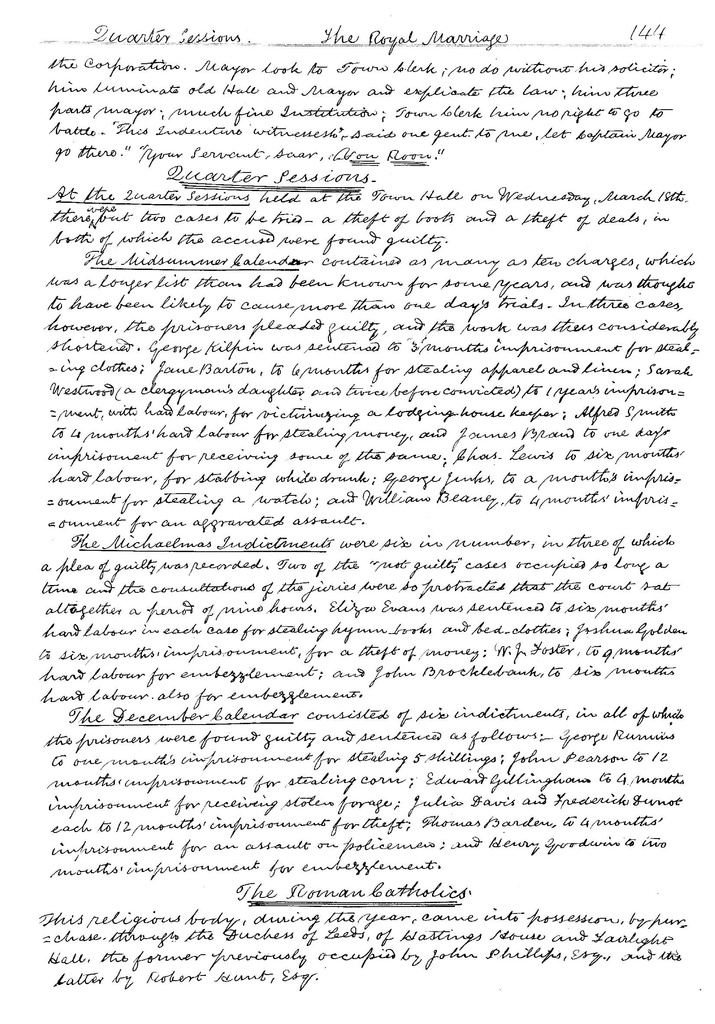 Quarter Sessions. The Royal Marriage 144
the Corporation. Mayor look to Town Clerk; no do without his solicitor;
him luminate old Hall and Mayor and explicate the law; him three
parts mayor; much fine Institution; Town Clerk him no right to go to
battle. "This Indenture witnesseth", said one gent. to me, let Captain Mayor
go there." "Your Servant, Saar, Von Roon."
Quarter Sessions.
At the Quarter Sessions held at the Town Hall on Wednesday, March 18th.
there were but two cases to be tried – a theft of boots and a theft of deals, in
both of which the accused were found guilty.
The Midsummer Calendar contained as many as ten charges, which
was a longer list than had been known for some years, and was thought
to have been likely to cause more than one day's trials. In three cases,
however, the prisoners pleaded guilty, and the work was thus considerably
shortened. George Kilpin was sentenced to 3 months' imprisonment for steal-
=ing clothes; Jane Barton, to 6 months for stealing apparel and linen; Sarah
Westwood (a clergyman's daughter and twice before convicted) to 1 year's imprison=
=ment, with hard labour, for victimizing a lodging-house keeper; Alfred Smith
to 4 months' hard labour for stealing money, and James Brand to one day's
imprisonment for receiving some of the same; Chas. Lewis to six months'
hard labour, for stabbing while drunk; George Jinks, to a month's impris=
=onment for stealing a watch; and William Beaney, to 4 months' impris=
=onment for an aggravated assault.
The Michaelmas Indictments were six in number, in three of which
a plea of guilty was recorded. Two of the "not guilty" cases occupied so long a
time and the consultations of the juries were so protracted that the court sat
altogether a period of nine hours. Eliza Evans was sentenced to six months'
hard labour in each case for stealing hymn-books and bed-clothes; Joshua Golden
to six months' imprisonment, for a theft of money; W. J. Foster, to 9 months'
hard labour for embezzlement; and John Brocklebank, to six months
hard labour also for embezzlement.
The December Calendar consisted of six indictments, in all of which
the prisoners were found guilty and sentenced as follows:– George Rummins
to one month's imprisonment for stealing 5 shillings; John Pearson to 12
months' imprisonment for stealing corn; Edward Gillingham to 4 months
imprisonment for receiving stolen forage; Julia Davis and Frederick
each to 12 months' imprisonment for theft; Thomas Barden, to 4 months'
imprisonment for an assault on policemen; and Henry Goodwin to two
months' imprisonment for embezzlement.
The Roman Catholics.
This religious body, during the year, came into possession, by pur-
=chase, through the Duchess of Leeds, of Hastings House and Fairlight
Hall, the former previously occupied by John Phillips, Esq., and the
latter by Robert Hunt, Esq.